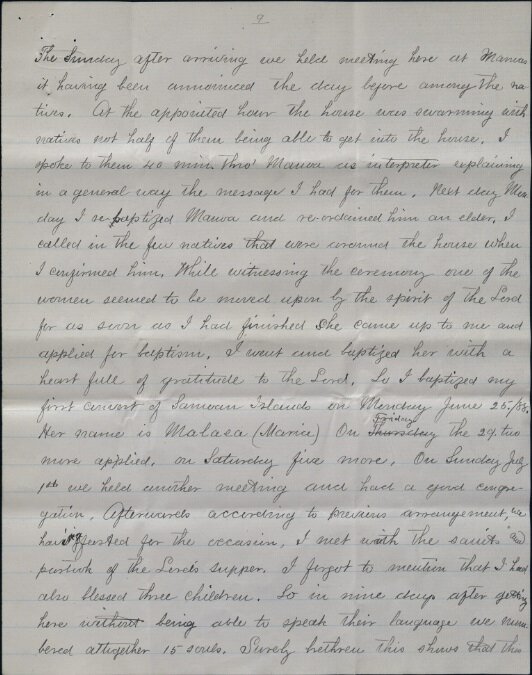 9
The Sunday after arriving we held meeting here at Manoas
it having been announced the day before among the na
tives. At the appointed hour the house was swarming with
natives not half of them being able to get into the house. I
spoke to them 40 min. thro' Manoa as interpreter explaining
in a general way the message I had for them. Next day Mon
day I re-baptized Manoa and re-ordained him an elder. I
called in the few natives that were around the house when
I confirmed him. While witnessing the ceremony one of the
women seemed to be moved upon by the spirit of the Lord
for as soon as I had finished she came up to me and
applied for baptism. I went and baptized her with a
heart full of gratitude to the Lord. So I baptized my
first convert of Samoan Islands on Monday June 25/88.
Her name is Malaea (Maria) On Thursday Friday the 29 two
more applied. on Saturday five more. On Sunday July
1st we held another meeting and had a good congre-
gation. Afterwards according to previous arrangement, we
having fasted for the occasion, I met with the saints and
partook of the Lords supper. I forgot to mention that I had
also blessed three children. So in nine days after getting
here without being able to speak their language we num
bered altogether 15 souls. Surely brethren this shows that this